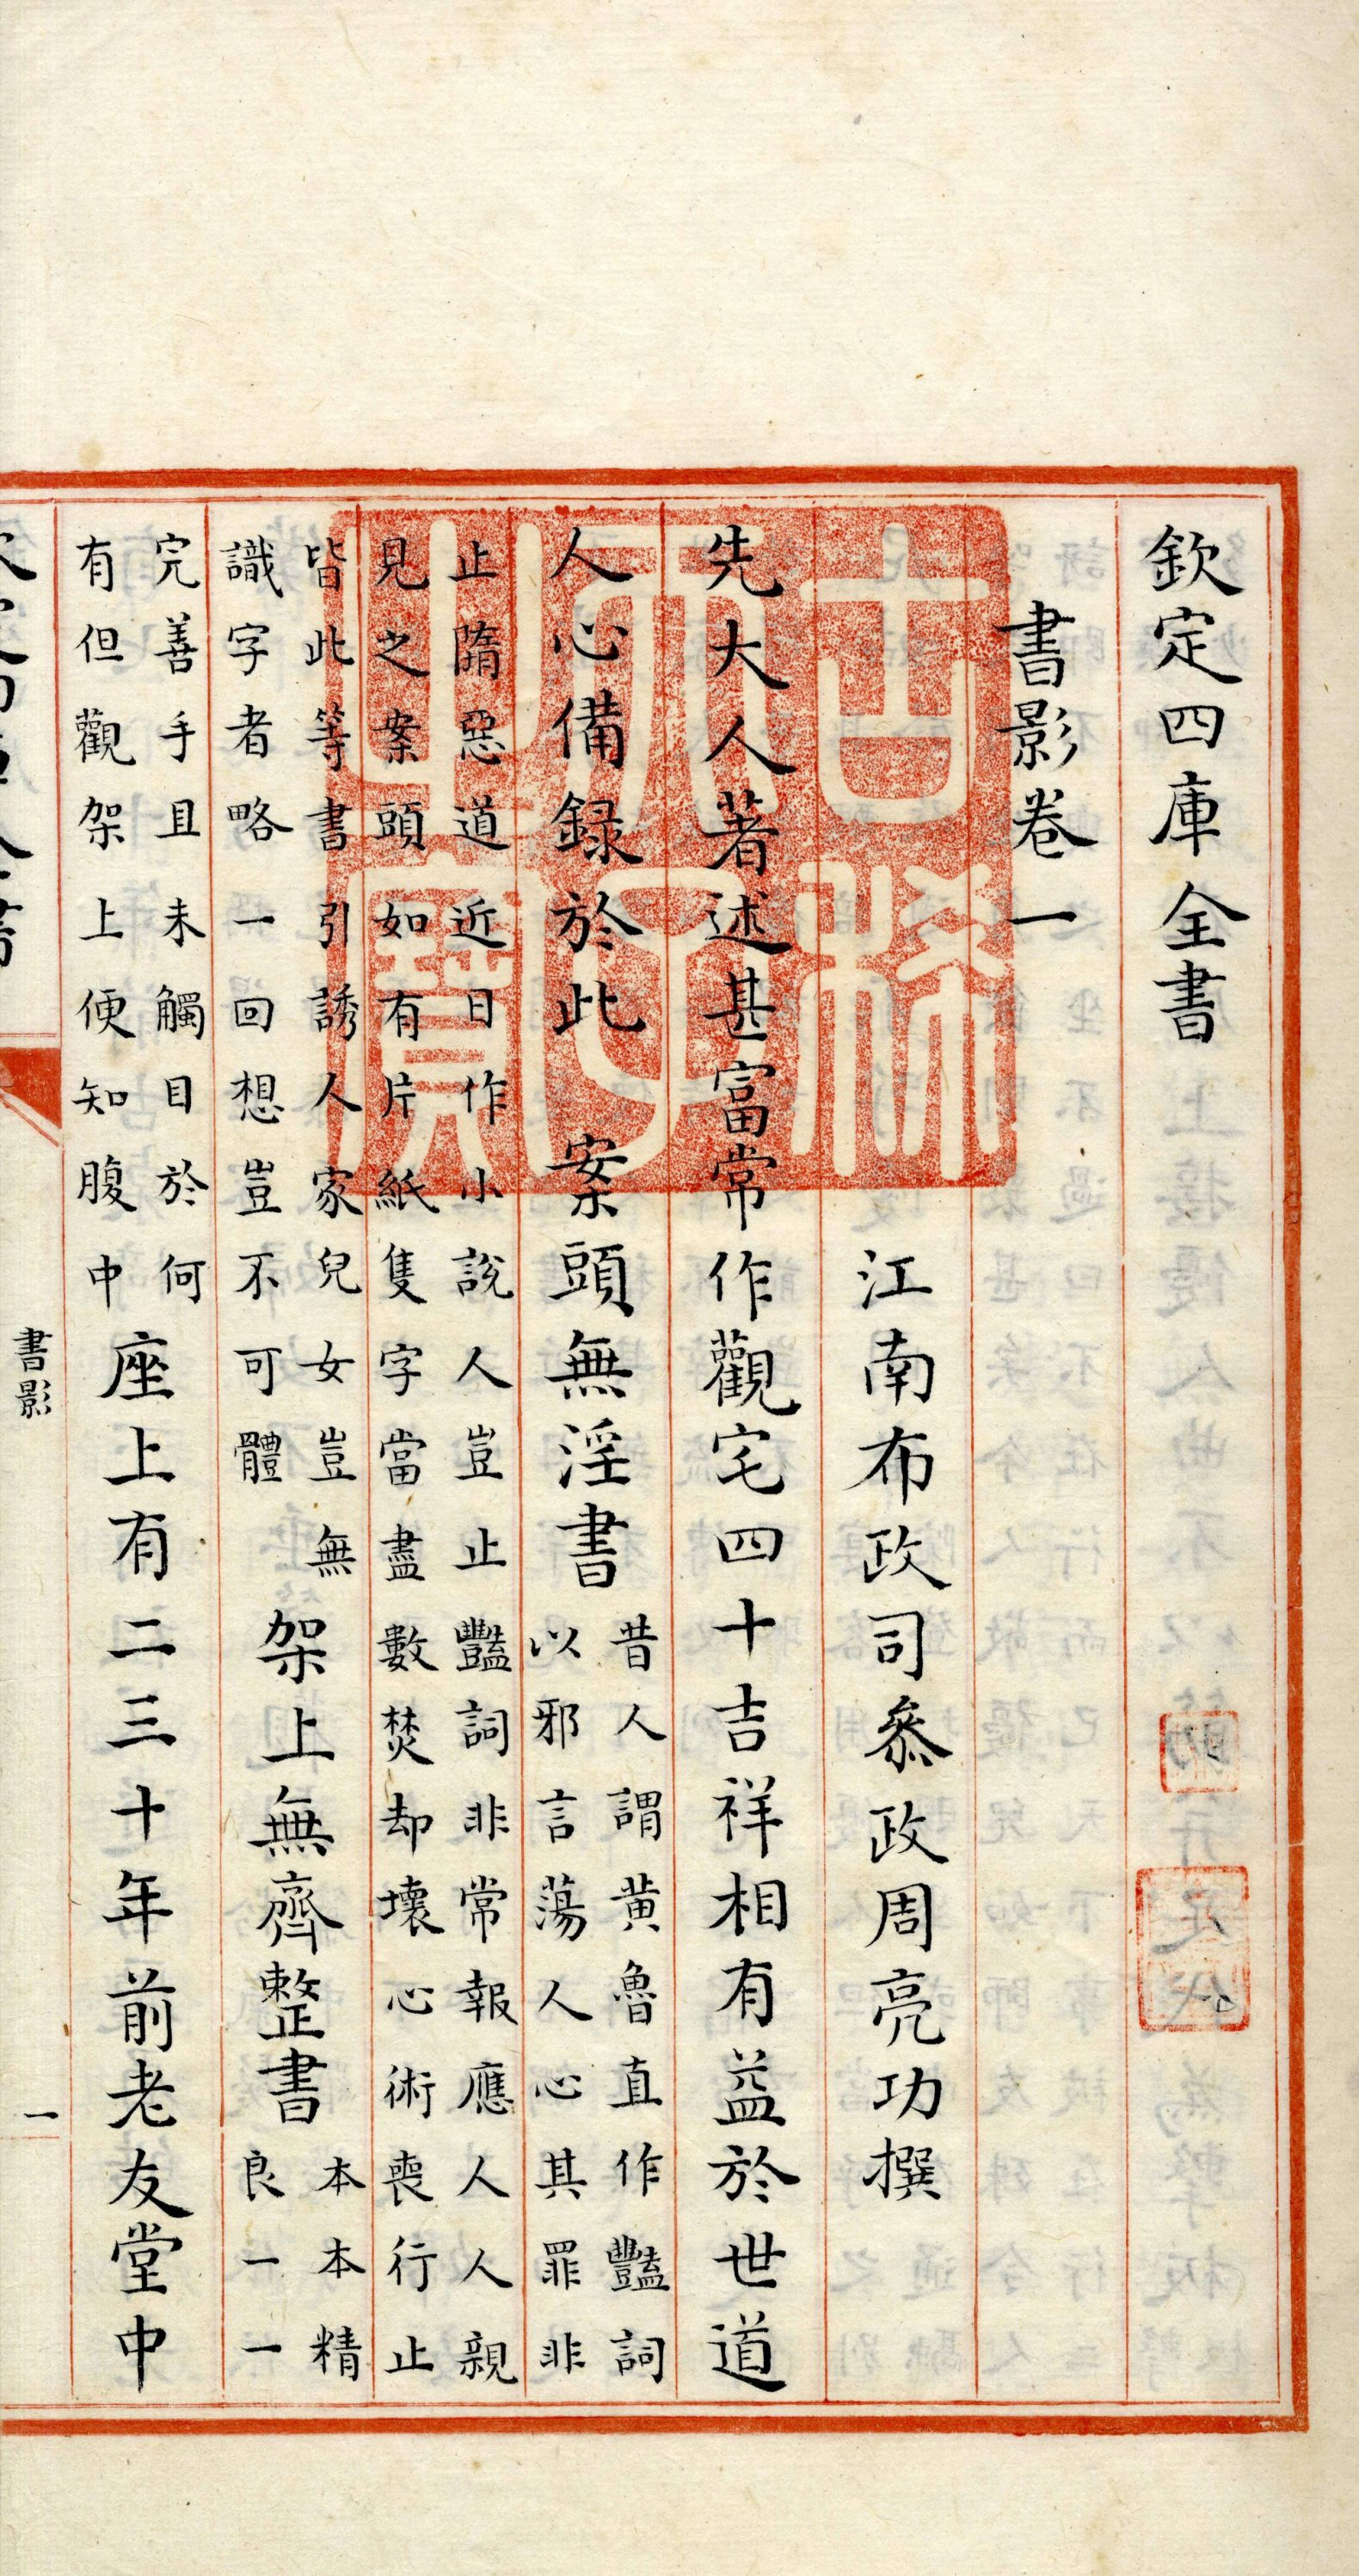 欽定四庫全書
書影卷一
江南布政司叅政周亮功撰
先大人著述甚富常作觀宅四十吉祥相有益於世道
人心備録於此 案頭無淫書
昔人謂黄魯直作豔詞
以邪言蕩人心其罪非
止隋惡道近日作小說人豈止豔詞非常報應人人親
見之案頭如有片紙隻字當盡數焚却壊心術喪行止
皆此等書引誘人家兒女豈無
識字者略一回想豈不可體
架上無齊整書
本本精
良一一
完善手且未觸目於何
有但觀架上便知腹中
座上有二三十年前老友堂中
書影
一
古稀天子之寶